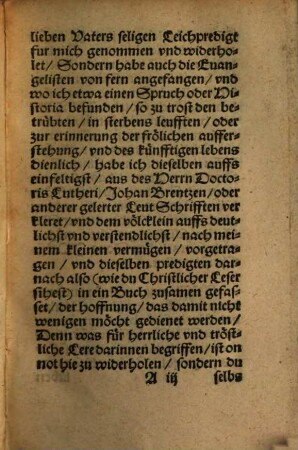 lieben Vaters seligen Leichpredigt
fur mich genommen vnd widerho-
let / Sondern habe auch die Euan-
gelisten von fern angefangen / vnd
wo ich etwa einen Spruch oder Hi-
storia befunden / so zu trost den be-
trübten / in sterbens leufften / oder
zur erinnerung der frölichen auffer-
stehung / vnd des künfftigen lebens
dienlich / habe ich dieselben auffs
einfeltigst / aus des Herrn Docto-
ris Lutheri / Johan Brentzen / oder
anderer gelerter Leut Schrifften ver
kleret / vnd dem völcklein auffs deut-
lichst vnd verstendlichst / nach mei-
nem kleinen vermügen / vorgetra-
gen / vnd dieselben predigten dar-
nach also (wie du Christlicher Leser
sihest) in ein Buch zusamen gefas-
set / der hoffnung / das damit nicht
wenigen möcht gedienet werden /
Denn was für herrliche vnd tröst-
liche Lere darinnen begriffen / ist on
not hie zu widerholen / sondern du
A iij selbs